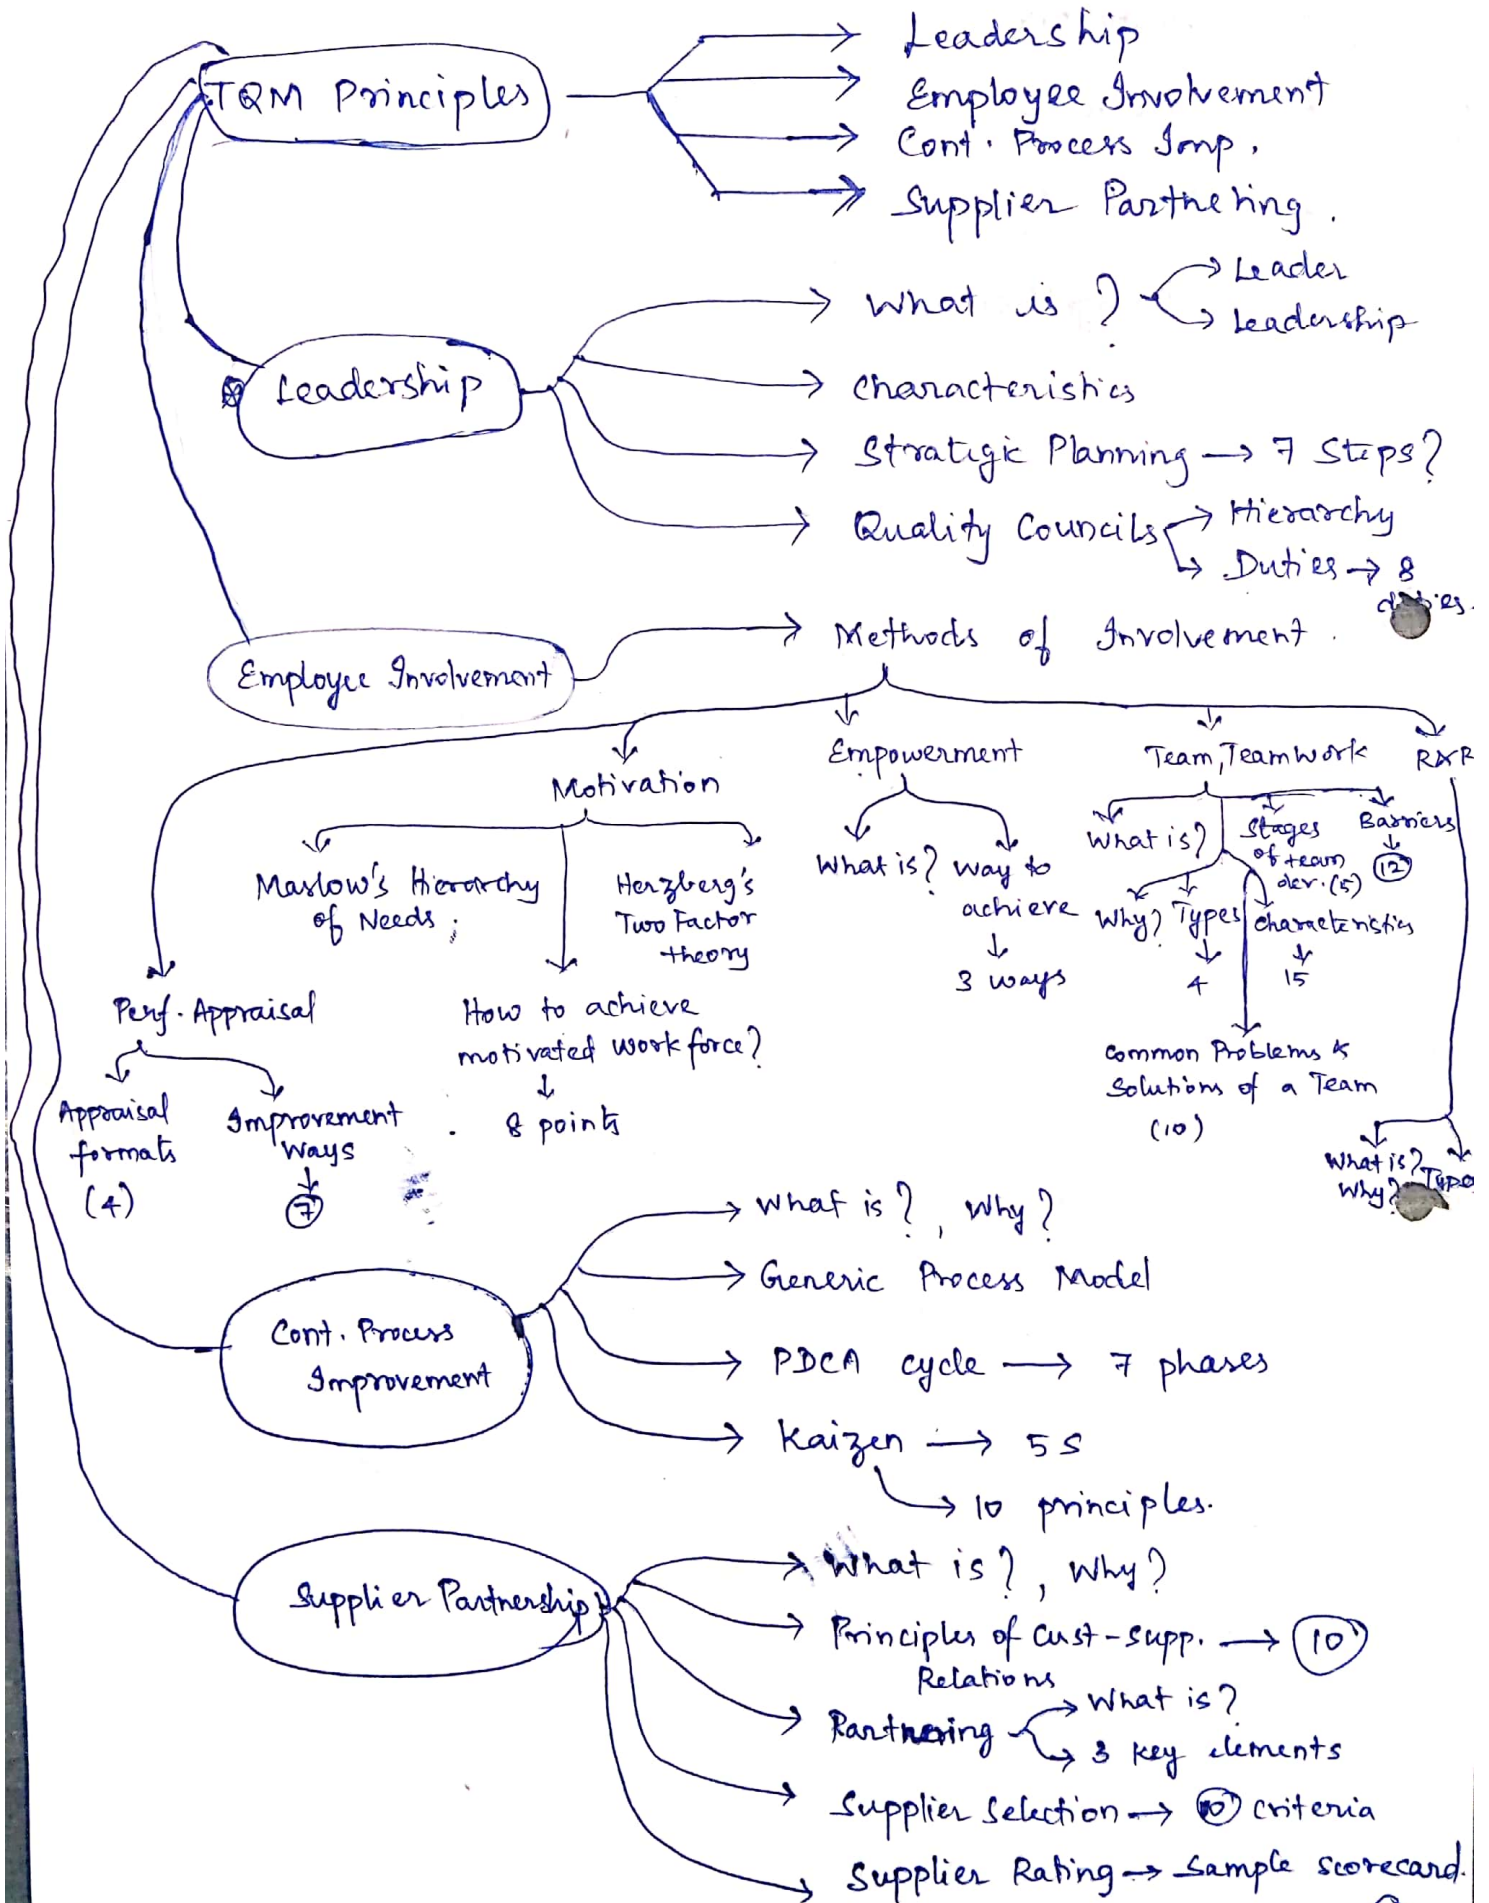 TQM Principles
Leadership
Employee Involvement
Cont. Process Imp.
Supplier Partnering.
Leadership
What is?
Leader
Leadership
Characteristics
Stratigic Planning → 7 Steps?
Quality Councils
Hierarchy
Duties → 8
duties.
Employee Involvement
Methods of Involvement.
Perf. Appraisal
Appraisal
formats
(4)
Improvement
Ways
7
Motivation
Maslow's Hierarchy
of Needs;
How to achieve
motivated work force?
8 points
Herzberg's
Two Factor
theory
Empowerment
What is?
way to
achieve
3 ways
Team, Teamwork
What is?
Why?
Types
4
Stages
of team
dev. (5)
Characteristics
15
Barriers
12
Common Problems &
Solutions of a Team
(10)
R&R
What is?
Why?
Type
Cont. Process
Improvement
What is?, Why?
Generic Process Model
PDCA cycle → 7 phases
Kaizen → 5S
10 principles.
Supplier Partnership
What is?, Why?
Principles of Cust-supp. → 10
Relations
Partnering
What is?
3 key elements
Supplier Selection → 10 criteria
Supplier Rating → Sample scorecard.